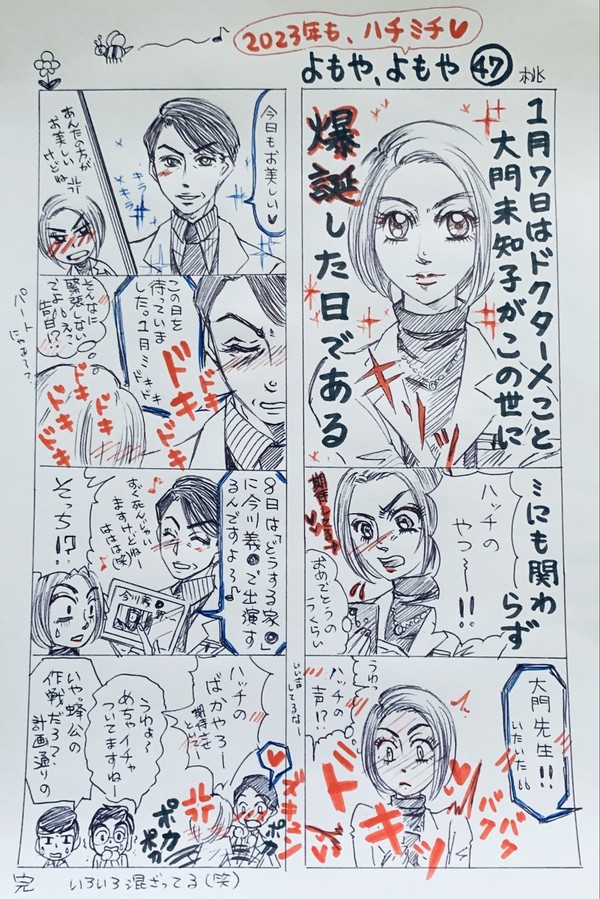 2023年も、ハチミチ♥
よもや、よもや㊼ 桃
1月7日はドクターXこと
大門未知子がこの世に
爆誕した日である
キリッ
ミにも関わ
らず
ハッチの
やつ〜!!
期待してる
おめでとうの
1つくらい
大門先生!!
いたいた
うわっ
ハッチの
声!?
いい声
してるな〜
ドキッ
バク
バク
今日もお美しい♥
キラ
キラ
あんたの方が
お美しい
けどね
この日を
待っていま
した。1月ミ
ドキドキ
ドキ
ドキ
ドキ
ドキ
そんなに
緊張しない
でよ!!
告白!?
8日は「どうする家◎」
に今川義◎で出演す
るんですよ♪
すぐ死んじゃい
ますけどねー
ははは(笑)
今川義◎
そっち!?
ハッチの
ばかやろー
期待を
といてー
ズキュン
ポカ
ポカ
うわぁ〜
めちゃイチャ
ついてますねー
いや。蜂公の
作戦だろう?
計画通りの
完 いろいろ混ざってる(笑)